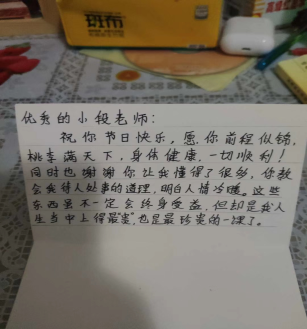 班布
优秀的小段老师：
祝你节日快乐，愿你前程似锦，
桃李满天下，身体健康，一切顺利！
同时也谢谢你让我懂得了很多，你教
会我待人处事的道理，明白人情冷暖。这些
东西虽不一定会终身受益，但却是我人
生当中上得"贵"，也是最珍贵的一课了。